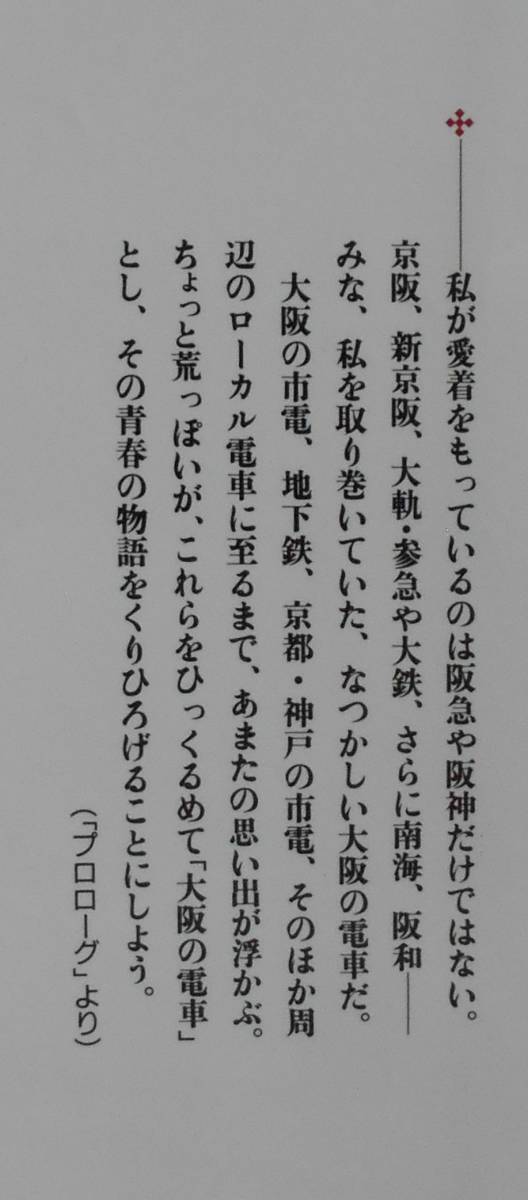 ――私が愛着をもっているのは阪急や阪神だけではない。
京阪、新京阪、大軌・参急や大鉄、さらに南海、阪和――
みな、私を取り巻いていた、なつかしい大阪の電車だ。
　大阪の市電、地下鉄、京都・神戸の市電、そのほか周
辺のローカル電車に至るまで、あまたの思い出が浮かぶ。
ちょっと荒っぽいが、これらをひっくるめて「大阪の電車」
とし、その青春の物語をくりひろげることにしよう。
（「プロローグ」より）